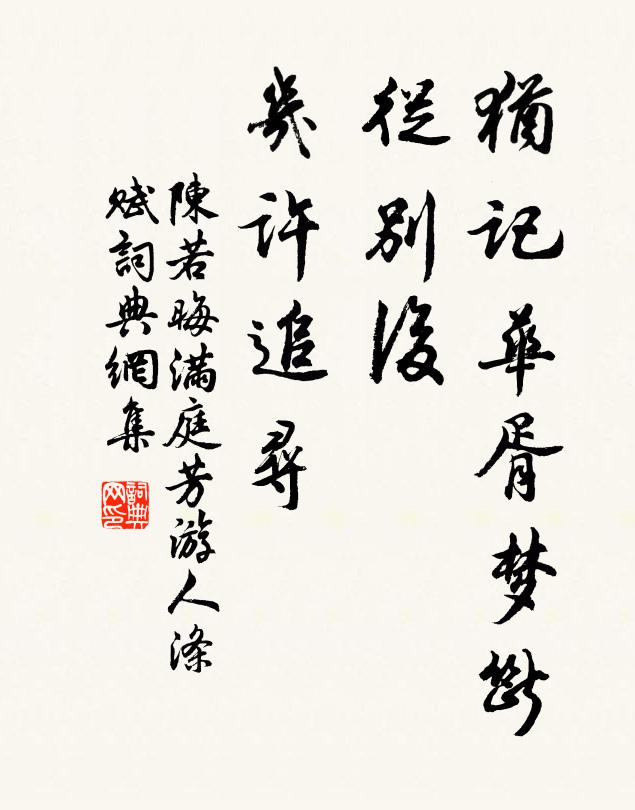 猶記華胥梦斷
從別後
幾許追尋
陳若晦滿庭芳游人滌
賦詞典網集
詞典网印